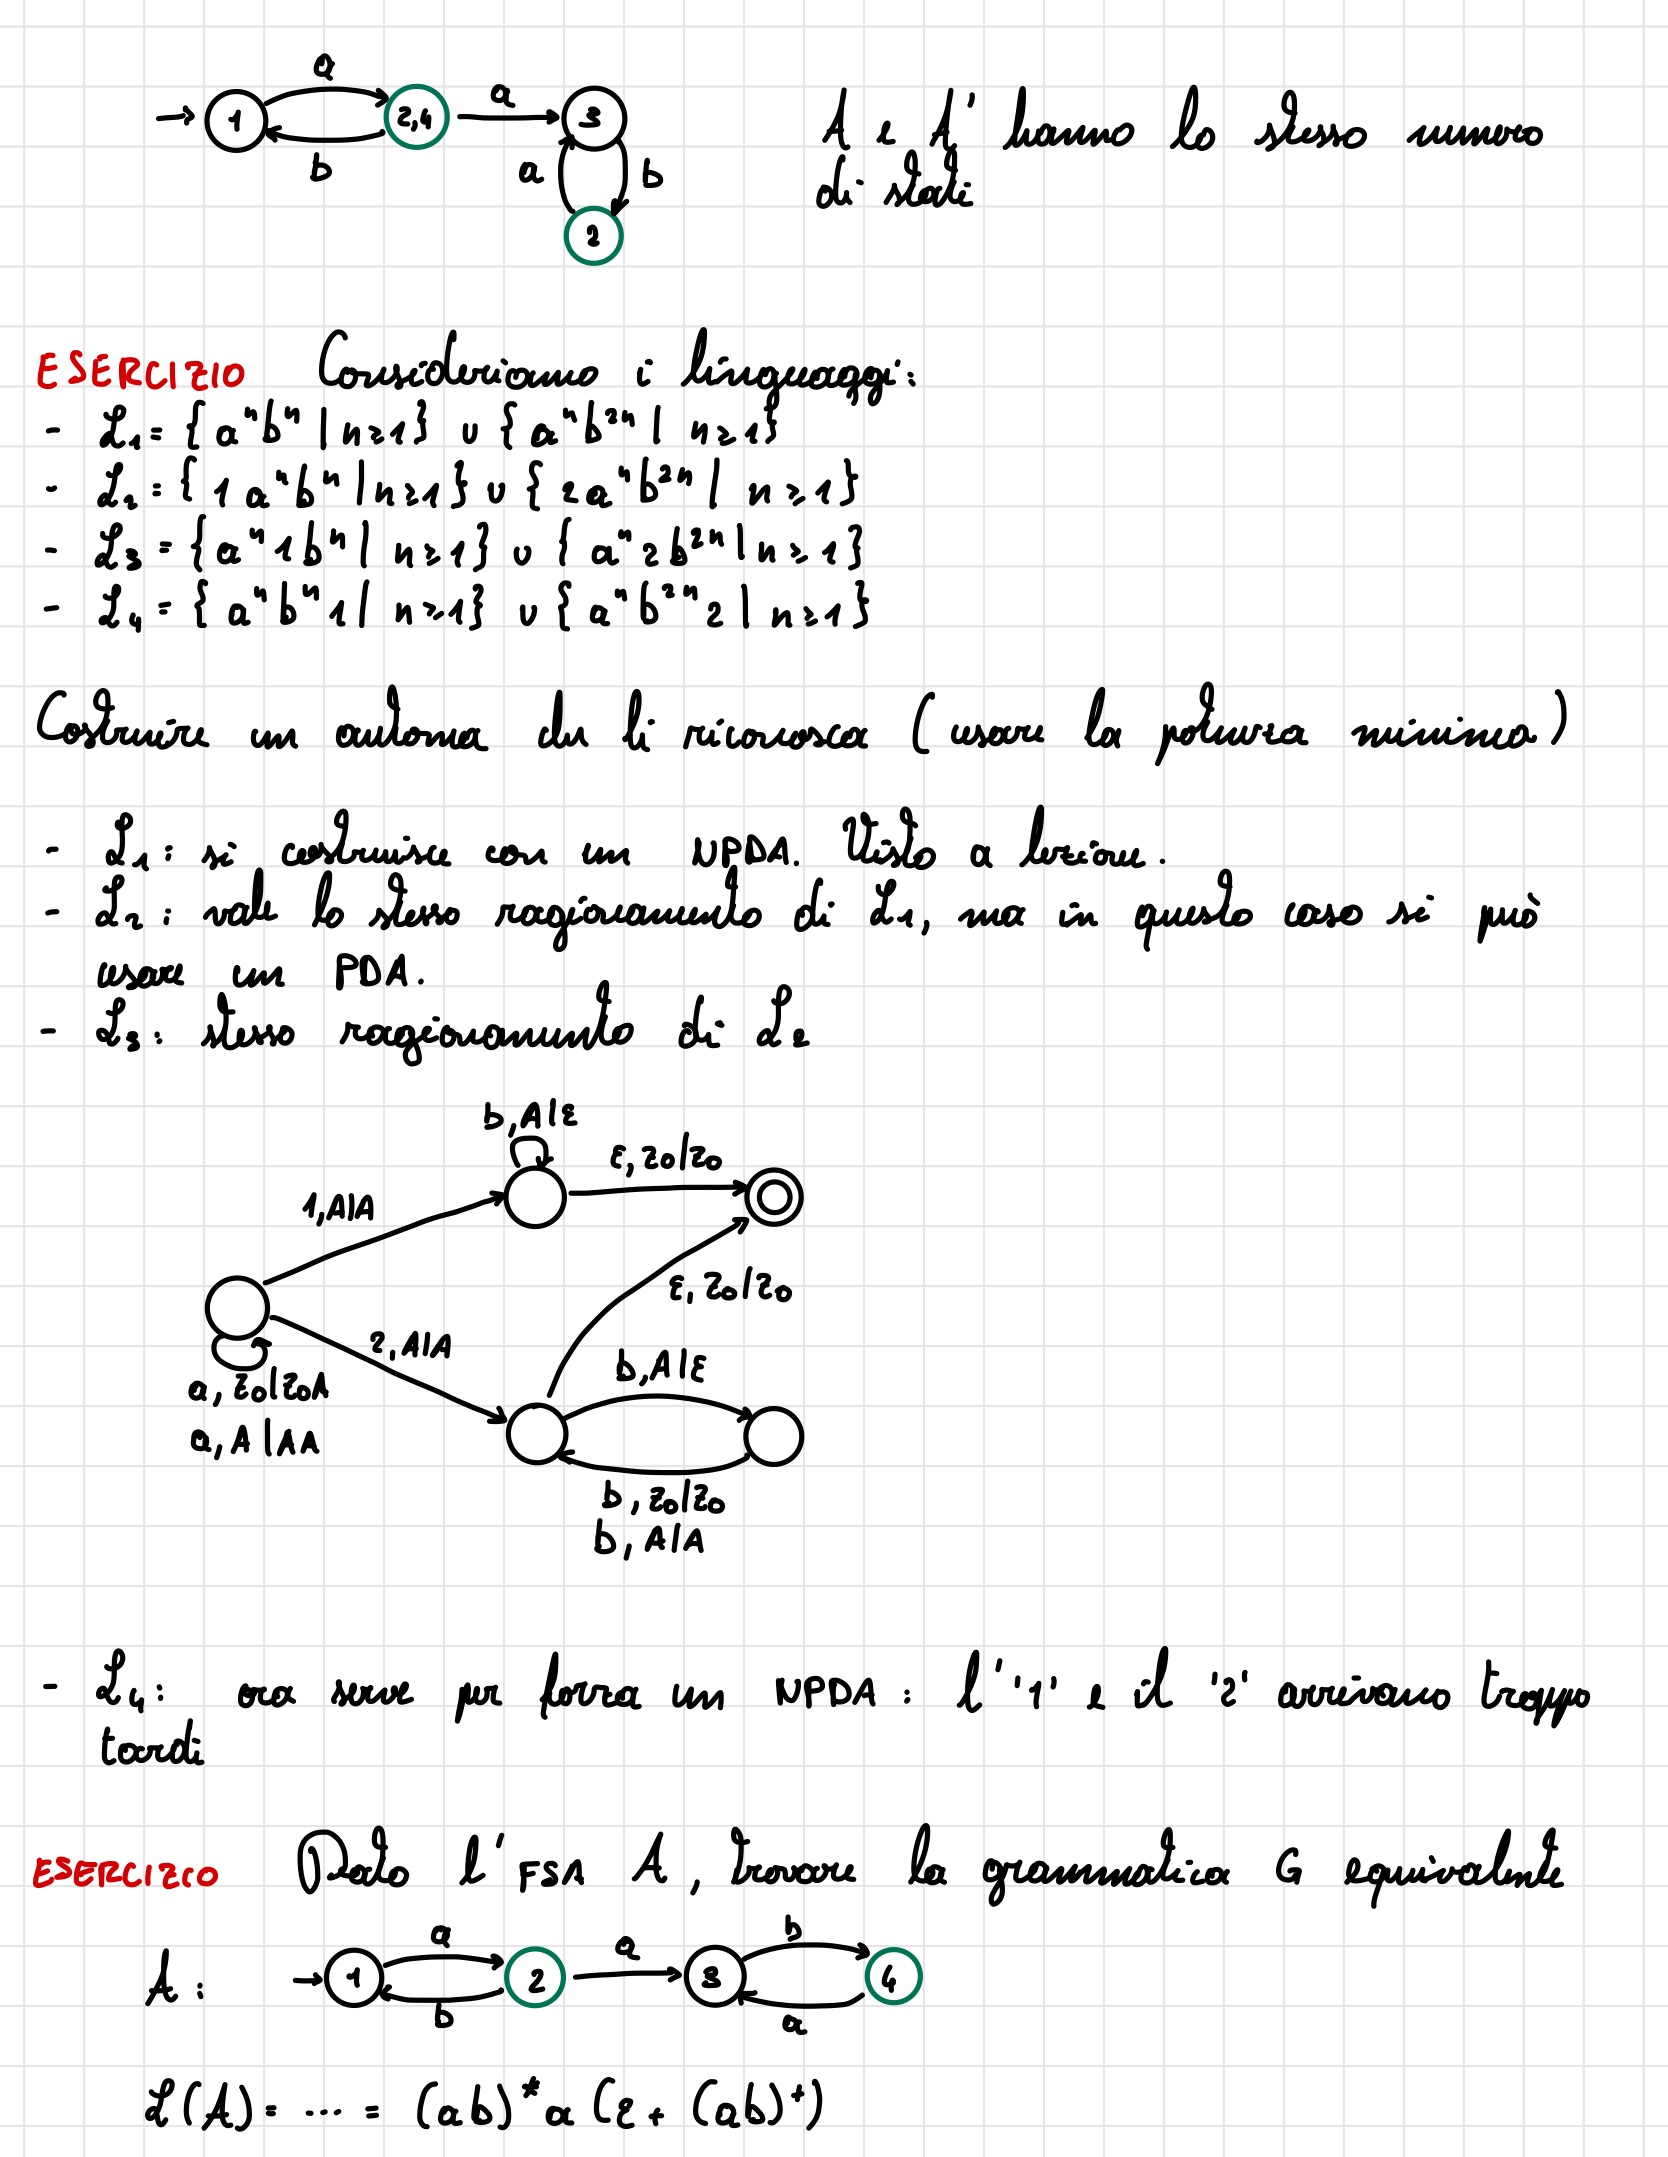 a
→ 1 2,4 a 3
b a b
2
A e A' hanno lo stesso numero
di stati
ESERCIZIO Consideriamo i linguaggi:
- L₁ = { aⁿbⁿ | n≥1 } ∪ { aⁿb²ⁿ | n≥1 }
- L₂ = { 1aⁿbⁿ | n≥1 } ∪ { 2aⁿb²ⁿ | n≥1 }
- L₃ = { aⁿ1bⁿ | n≥1 } ∪ { aⁿ2b²ⁿ | n≥1 }
- L₄ = { aⁿbⁿ1 | n≥1 } ∪ { aⁿb²ⁿ2 | n≥1 }
Costruire un automa che li riconosca (usare la potenza minima)
- L₁: si costruisce con un NPDA. Visto a lezione.
- L₂: vale lo stesso ragionamento di L₁, ma in questo caso si può
usare un PDA.
- L₃: stesso ragionamento di L₂
b,A|ε
ε,Z₀|Z₀
1,A|A
ε,Z₀|Z₀
2,A|A
b,A|ε
a,Z₀|Z₀A
a,A|AA
b,Z₀|Z₀
b,A|A
- L₄: ora serve per forza un NPDA: l''1' e il '2' arrivano troppo
tardi
ESERCIZIO Dato l'FSA A, trovare la grammatica G equivalente
a a b
A: → 1 2 3 4
b a
L(A) = ... = (ab)*a(ε + (ab)⁺)